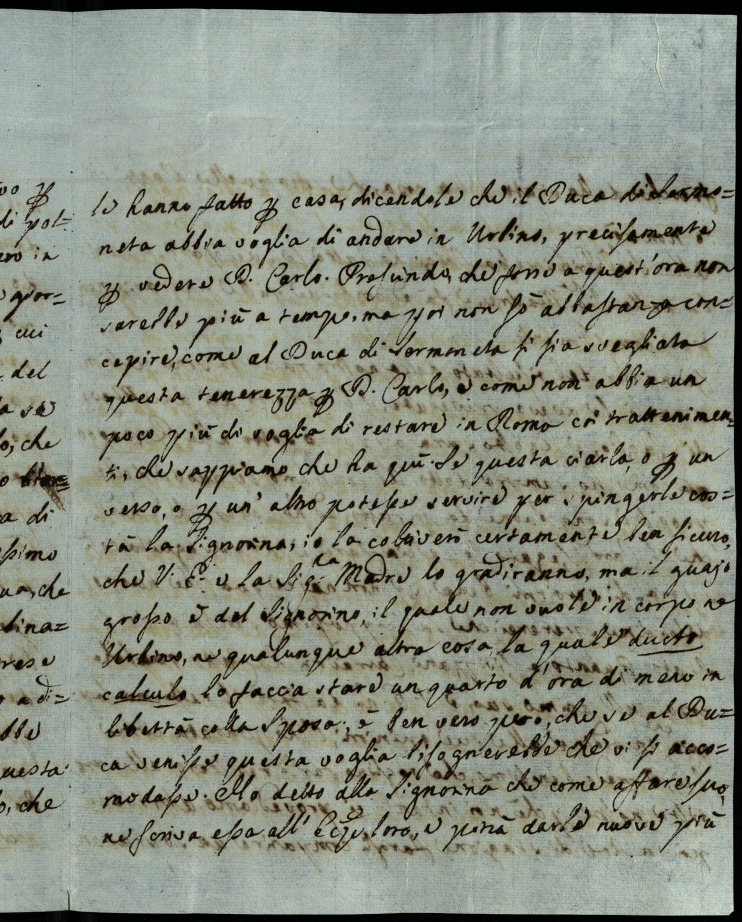 vo ꝑ
di pot-
ero in
e gior=
cui
del
la se
lo, che
o
a di
ssimo
ua, che
lina=
rese
o a di=
bbe
questa
o, che
le hanno fatto ꝑ casa, dicendole che il Duca di Sermo=
neta abbia voglia di andare in Urbino, precisamente
ꝑ vedere D. Carlo. Profundo, che forse a quest'ora non
sarebbe più a tempo, ma poi non sò abbastanza con=
cepire, come al Duca di Sermoneta si sia svegliata
questa tenerezza ꝑ D. Carlo, e come non abbia un
poco più di voglia di restare in Roma coi trattenimen=
ti, che sappiamo che ha quì. Se questa ciarla, o ꝑ un
verso, o ꝑ un' altro potesse servire per spingerle cos=
tà la Signorina, io la coltiverò certamente ben sicuro,
che V: E. e la Sig.ra Madre lo gradiranno, ma il guajo
grosso è del Signorino, il quale non vuole in corpo ne
Urbino, ne qualunque altra cosa, la quale ducto
calculo lo faccia stare un quarto d'ora di meno in
libertà colla Sposa; è ben vero però, che se al Du=
ca venisse questa voglia bisognerebbe che vi si acco=
modasse. Ho detto alla Signorina che come affare suo,
ne scriva essa all' Ecc.ze loro, e potrà darle nuove più